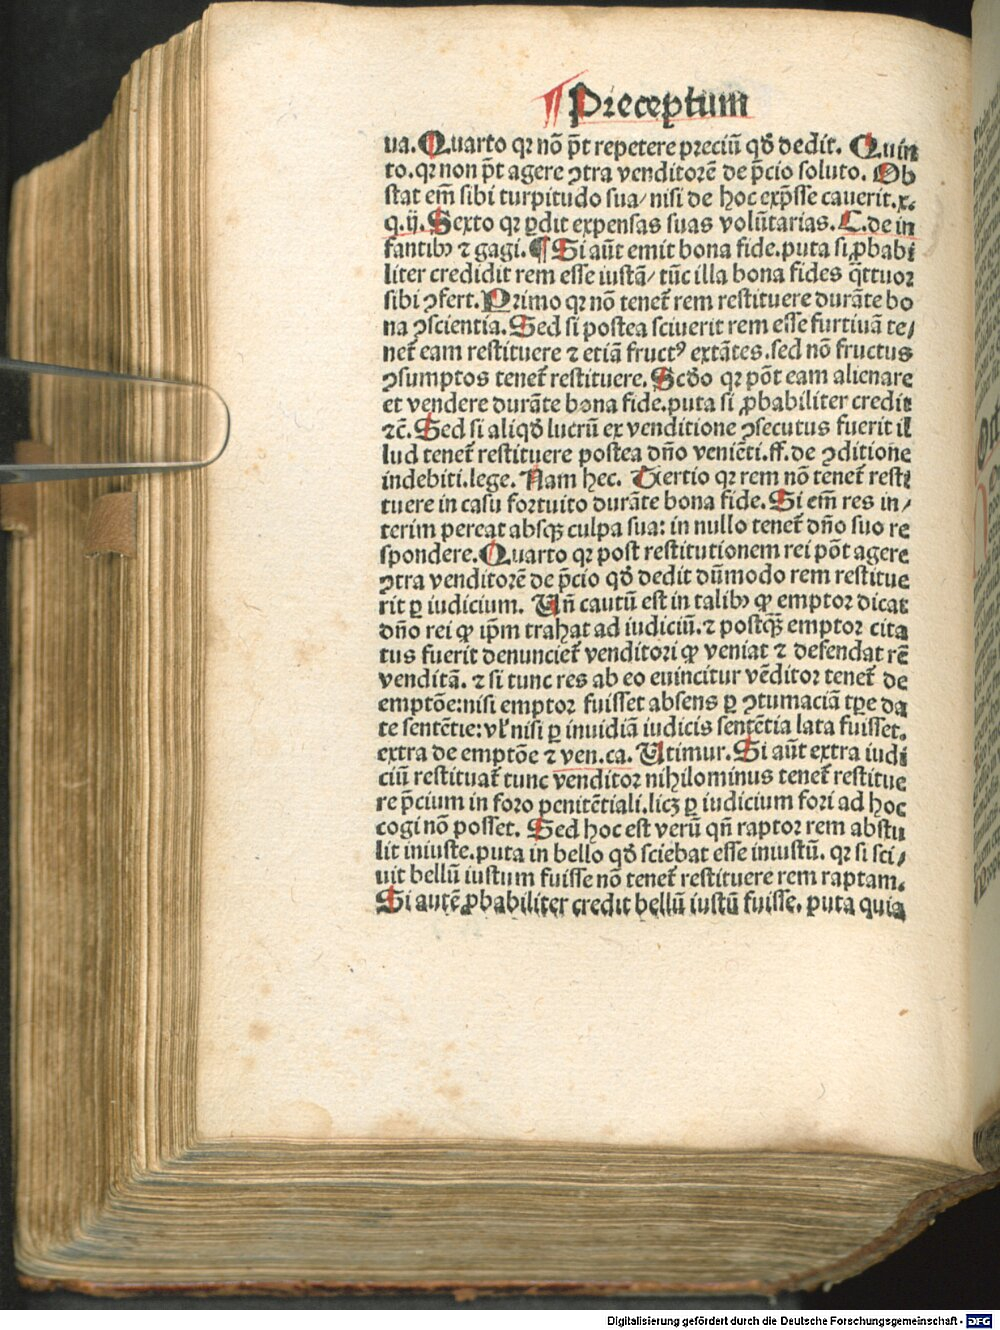 ¶ Preceptum
ua. Quarto qꝛ nō p̄t repetere preciū qḋ dedit. Quin
to. qꝛ non p̄t agere ↄtra venditorē de p̄cio soluto. Ob
stat em̄ sibi turpitudo sua/ nisi de hoc exp̄sse cauerit. x.
q. ij. Sexto qꝛ ꝑdit expensas suas volūtarias. C. de in
fantibꝫ ⁊ gagi. ¶ Si aūt emit bona fide. puta si ꝓbabi
liter credidit rem esse iustā/ tūc illa bona fides q̄ttuor
sibi ↄfert. Primo qꝛ nō tenet̄ rem restituere durāte bo
na ↄscientia. Sed si postea sciuerit rem esse furtiuā te/
net̄ eam restituere ⁊ etiā fructꝰ extātes. sed nō fructus
ↄsumptos tenet̄ restituere. Scḋo qꝛ pōt eam alienare
et vendere durāte bona fide. puta si ꝓbabiliter credit
⁊c̄. Sed si aliqḋ lucrū ex venditione ↄsecutus fuerit il
lud tenet̄ restituere postea dn̄o veniēti. ff. de ↄditione
indebiti. lege. Nam hec. Tiertio qꝛ rem nō tenet̄ resti
tuere in casu fortuito durāte bona fide. Si em̄ res in/
terim pereat absqꝫ culpa sua: in nullo tenet̄ dn̄o suo re
spondere. Quarto qꝛ post restitutionem rei pōt agere
ↄtra venditorē de p̄cio qḋ dedit dūmodo rem restitue
rit ꝑ iudicium. Un̄ cautū est in talibꝫ ꝙ emptor dicat
dn̄o rei ꝙ ip̄m trahat ad iudiciū. ⁊ postqꝫ̄ emptor cita
tus fuerit denunciet̄ venditori ꝙ veniat ⁊ defendat rē
venditā. ⁊ si tunc res ab eo euincitur vēditor tenet̄ de
emptōe: nisi emptor fuisset absens ꝑ ↄtumaciā tꝑe da
te sentētie: vl̄ nisi ꝑ inuidiā iudicis sentētia lata fuisset.
extra de emptōe ⁊ ven. ca. Utimur. Si aūt extra iudi
ciū restituat̄ tunc venditor nihilominus tenet̄ restitue
re p̄cium in foro penitētiali. licꝫ ꝑ iudicium fori ad hoc
cogi nō posset. Sed hoc est verū qn̄ raptor rem abstu
lit iniuste. puta in bello qḋ sciebat esse iniustū. qꝛ si sci/
uit bellū iustum fuisse nō tenet̄ restituere rem raptam.
Si autē ꝓbabiliter credit bellū iustū fuisse. puta quia
Digitalisierung gefördert durch die Deutsche Forschungsgemeinschaft - DFG